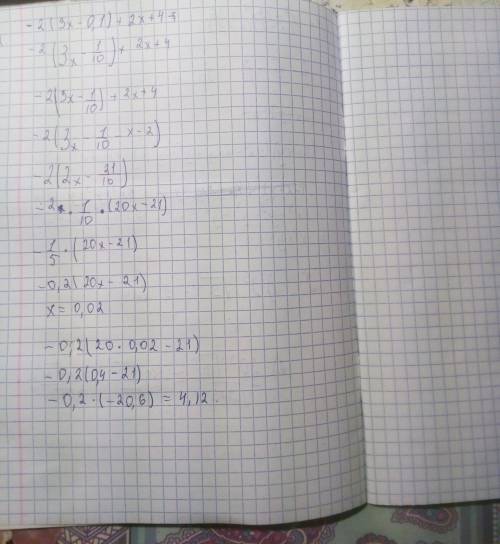 -2(3x-0,1)+2x+4=
-2(3x-1/10)+2x+4
-2(3x-1/10)+2x+4
-2(3x-1/10-x-2)
-2(2x-21/10)
-2·1/10·(20x-21)
-1/5·(20x-21)
-0,2(20x-21)
x=0,02
-0,2(20·0,02-21)
-0,2(0,4-21)
-0,2·(-20,6)=4,12.